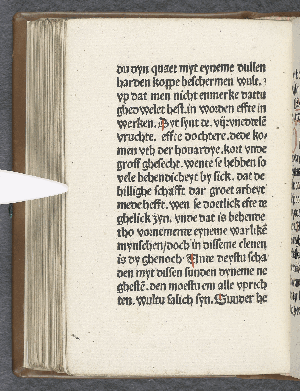 du dyn quaet myt eyneme dullen
harden koppe beschermen wult.
vp dat men nicht enmerke dattu
ghedwelet hest. in worden effte in
wercken. Dyt synt de. vij. vnedelē
vruchte. effte dochtere. dede ko
men vth der houardye. kort vnde
groff ghesecht. wente se hebben so
vele behendicheyt by sick. dat de
hillighe schrifft dar groet arbeyt
mede hefft. wen se doetlick effte de
ghelick zyn. vnde dat is behende
tho vornemende eyneme warlikē
mynschen/ doch in disseme cleynen
is dy ghenoch. Vnde deystu scha
den myt dissen sunden dyneme ne
ghestē. den moestu em alle vprich
ten. wultu salich syn. Sunder he